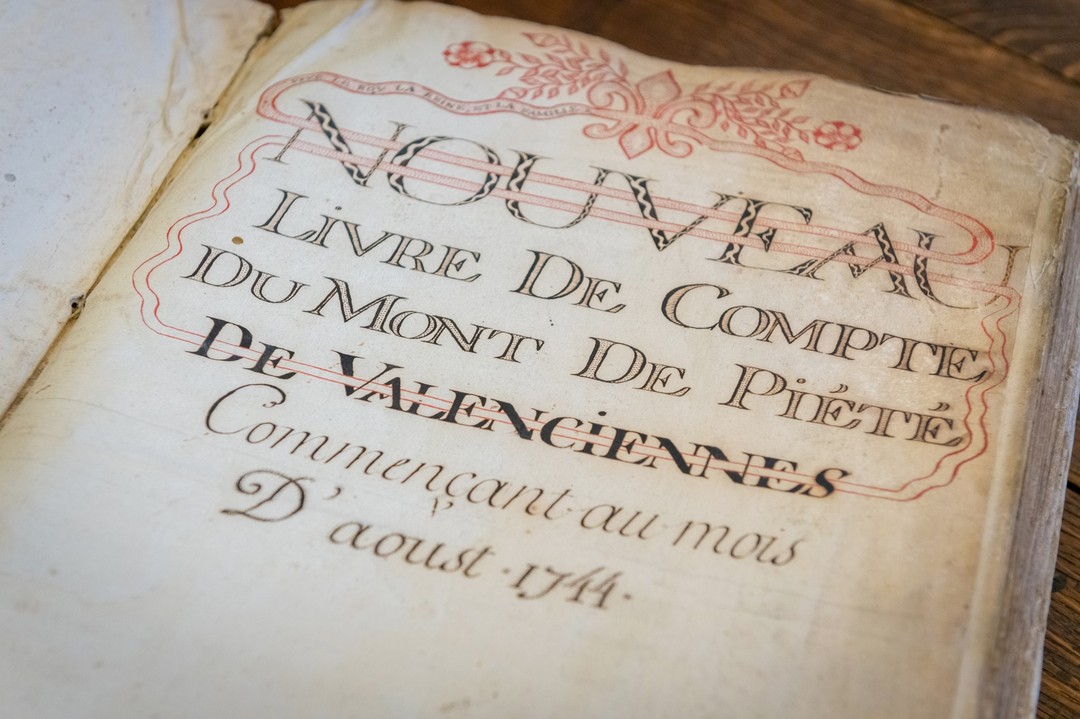 VIVE LE ROY LA REINE, ET LA FAMILLE
NOUVEAU
LIVRE DE COMPTE
DU MONT DE PiÉTÉ
DE VALENCiENNES
Commençant au mois
D'aoust ·1744·